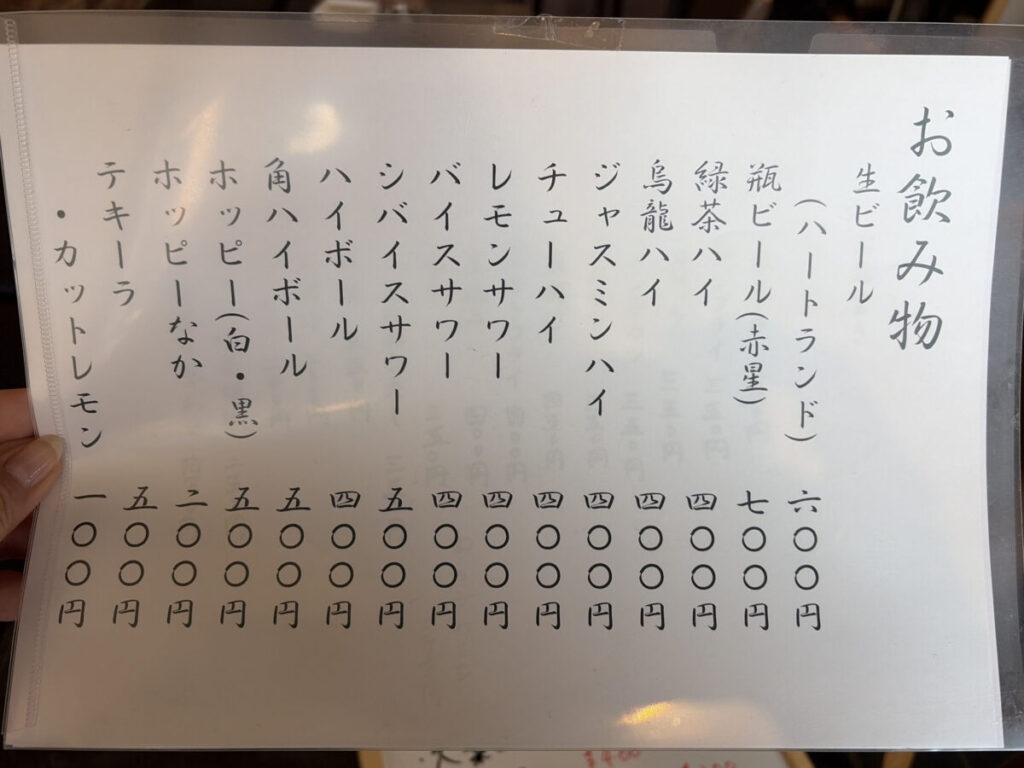 お飲み物
生ビール
(ハートランド) 六〇〇円
瓶ビール(赤星) 七〇〇円
緑茶ハイ 四〇〇円
烏龍ハイ 四〇〇円
ジャスミンハイ 四〇〇円
チューハイ 四〇〇円
レモンサワー 四〇〇円
バイスサワー 四〇〇円
シバイスサワー 五〇〇円
ハイボール 四〇〇円
角ハイボール 五〇〇円
ホッピー(白・黒) 五〇〇円
ホッピーなか 二〇〇円
テキーラ 五〇〇円
・カットレモン 一〇〇円